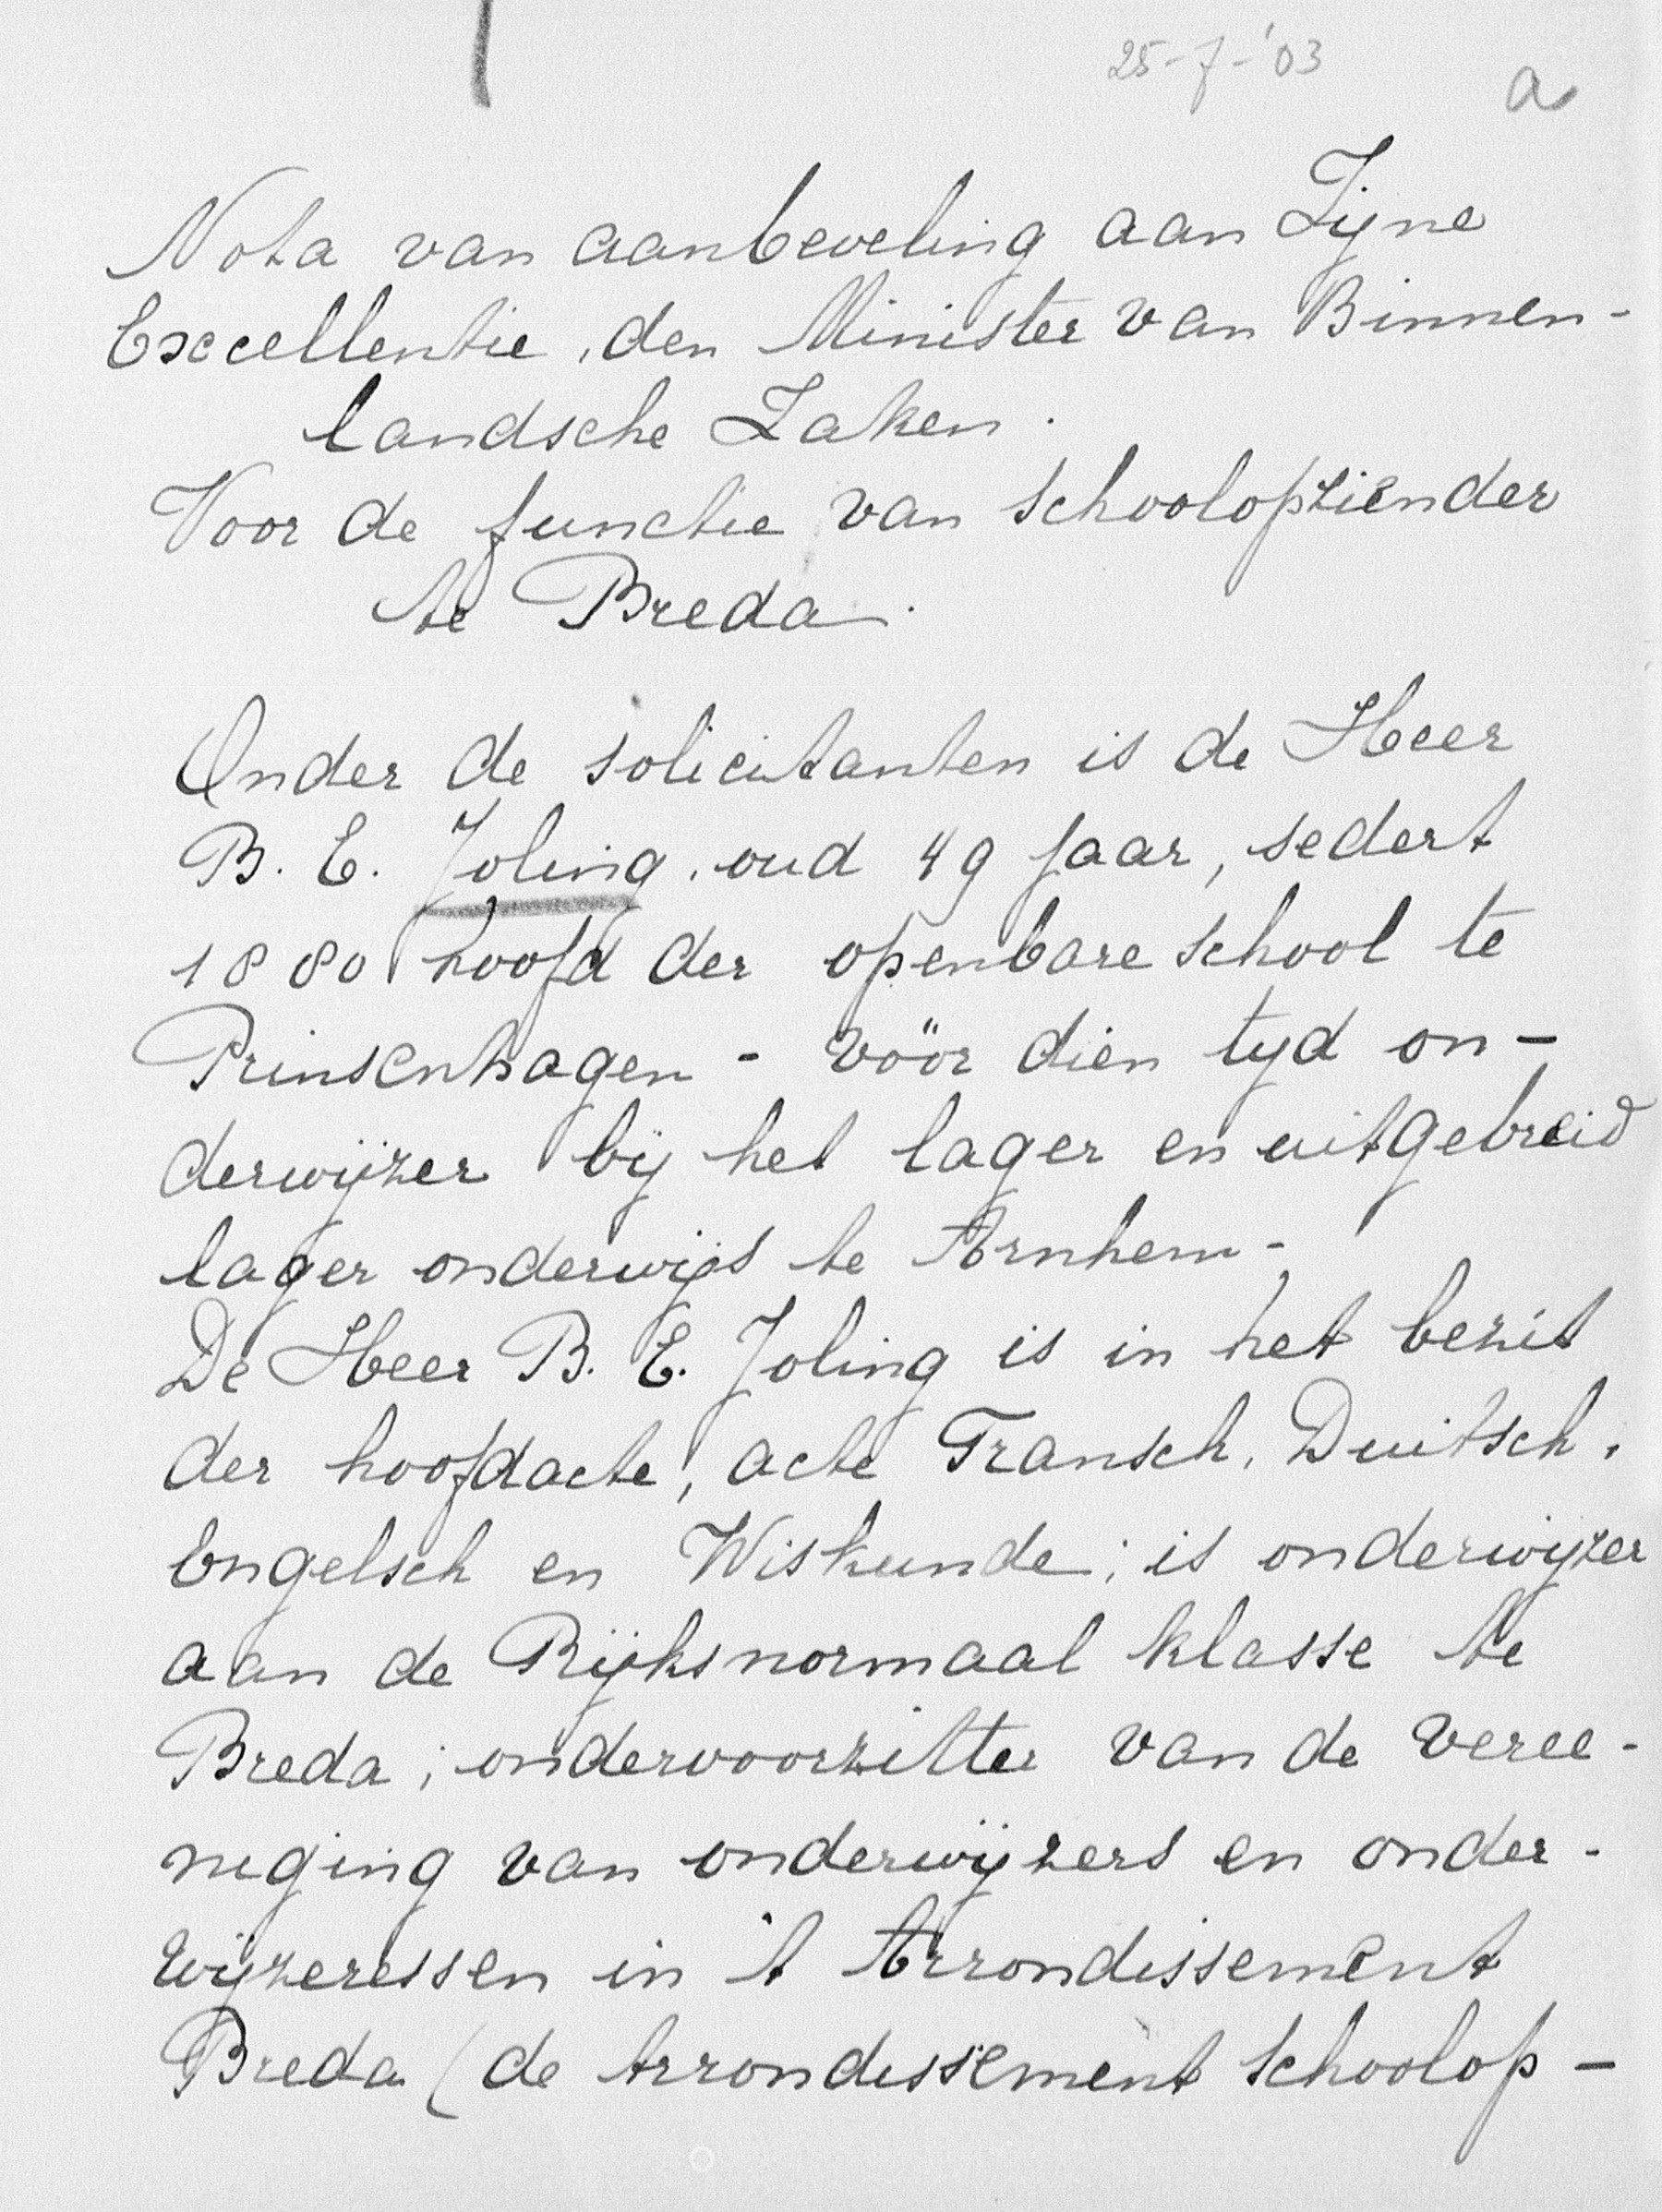 25-7-'03
a
Nota van aanbeveling aan Zijne
Excellentie, den Minister van Binnen-
landsche Zaken.
Voor de functie van schoolopziender
te Breda.
Onder de solicitanten is de Heer
B. E. Joling, oud 49 jaar, sedert
1880 hoofd der openbare school te
Prinsenhagen - vöör dien tyd on-
derwijzer bij het lager en uitgebreid
lager onderwijs te Arnhem -
De Heer B. E. Joling is in het bezit
der hoofdacte, acte Fransch, Duitsch,
Engelsch en Wiskunde; is onderwijzer
aan de Rijksnormaal klasse te
Breda; ondervoorzitter van de veree-
niging van onderwijzers en onder-
wijzeressen in 't Arrondissement
Breda (de Arrondissement schoolop-